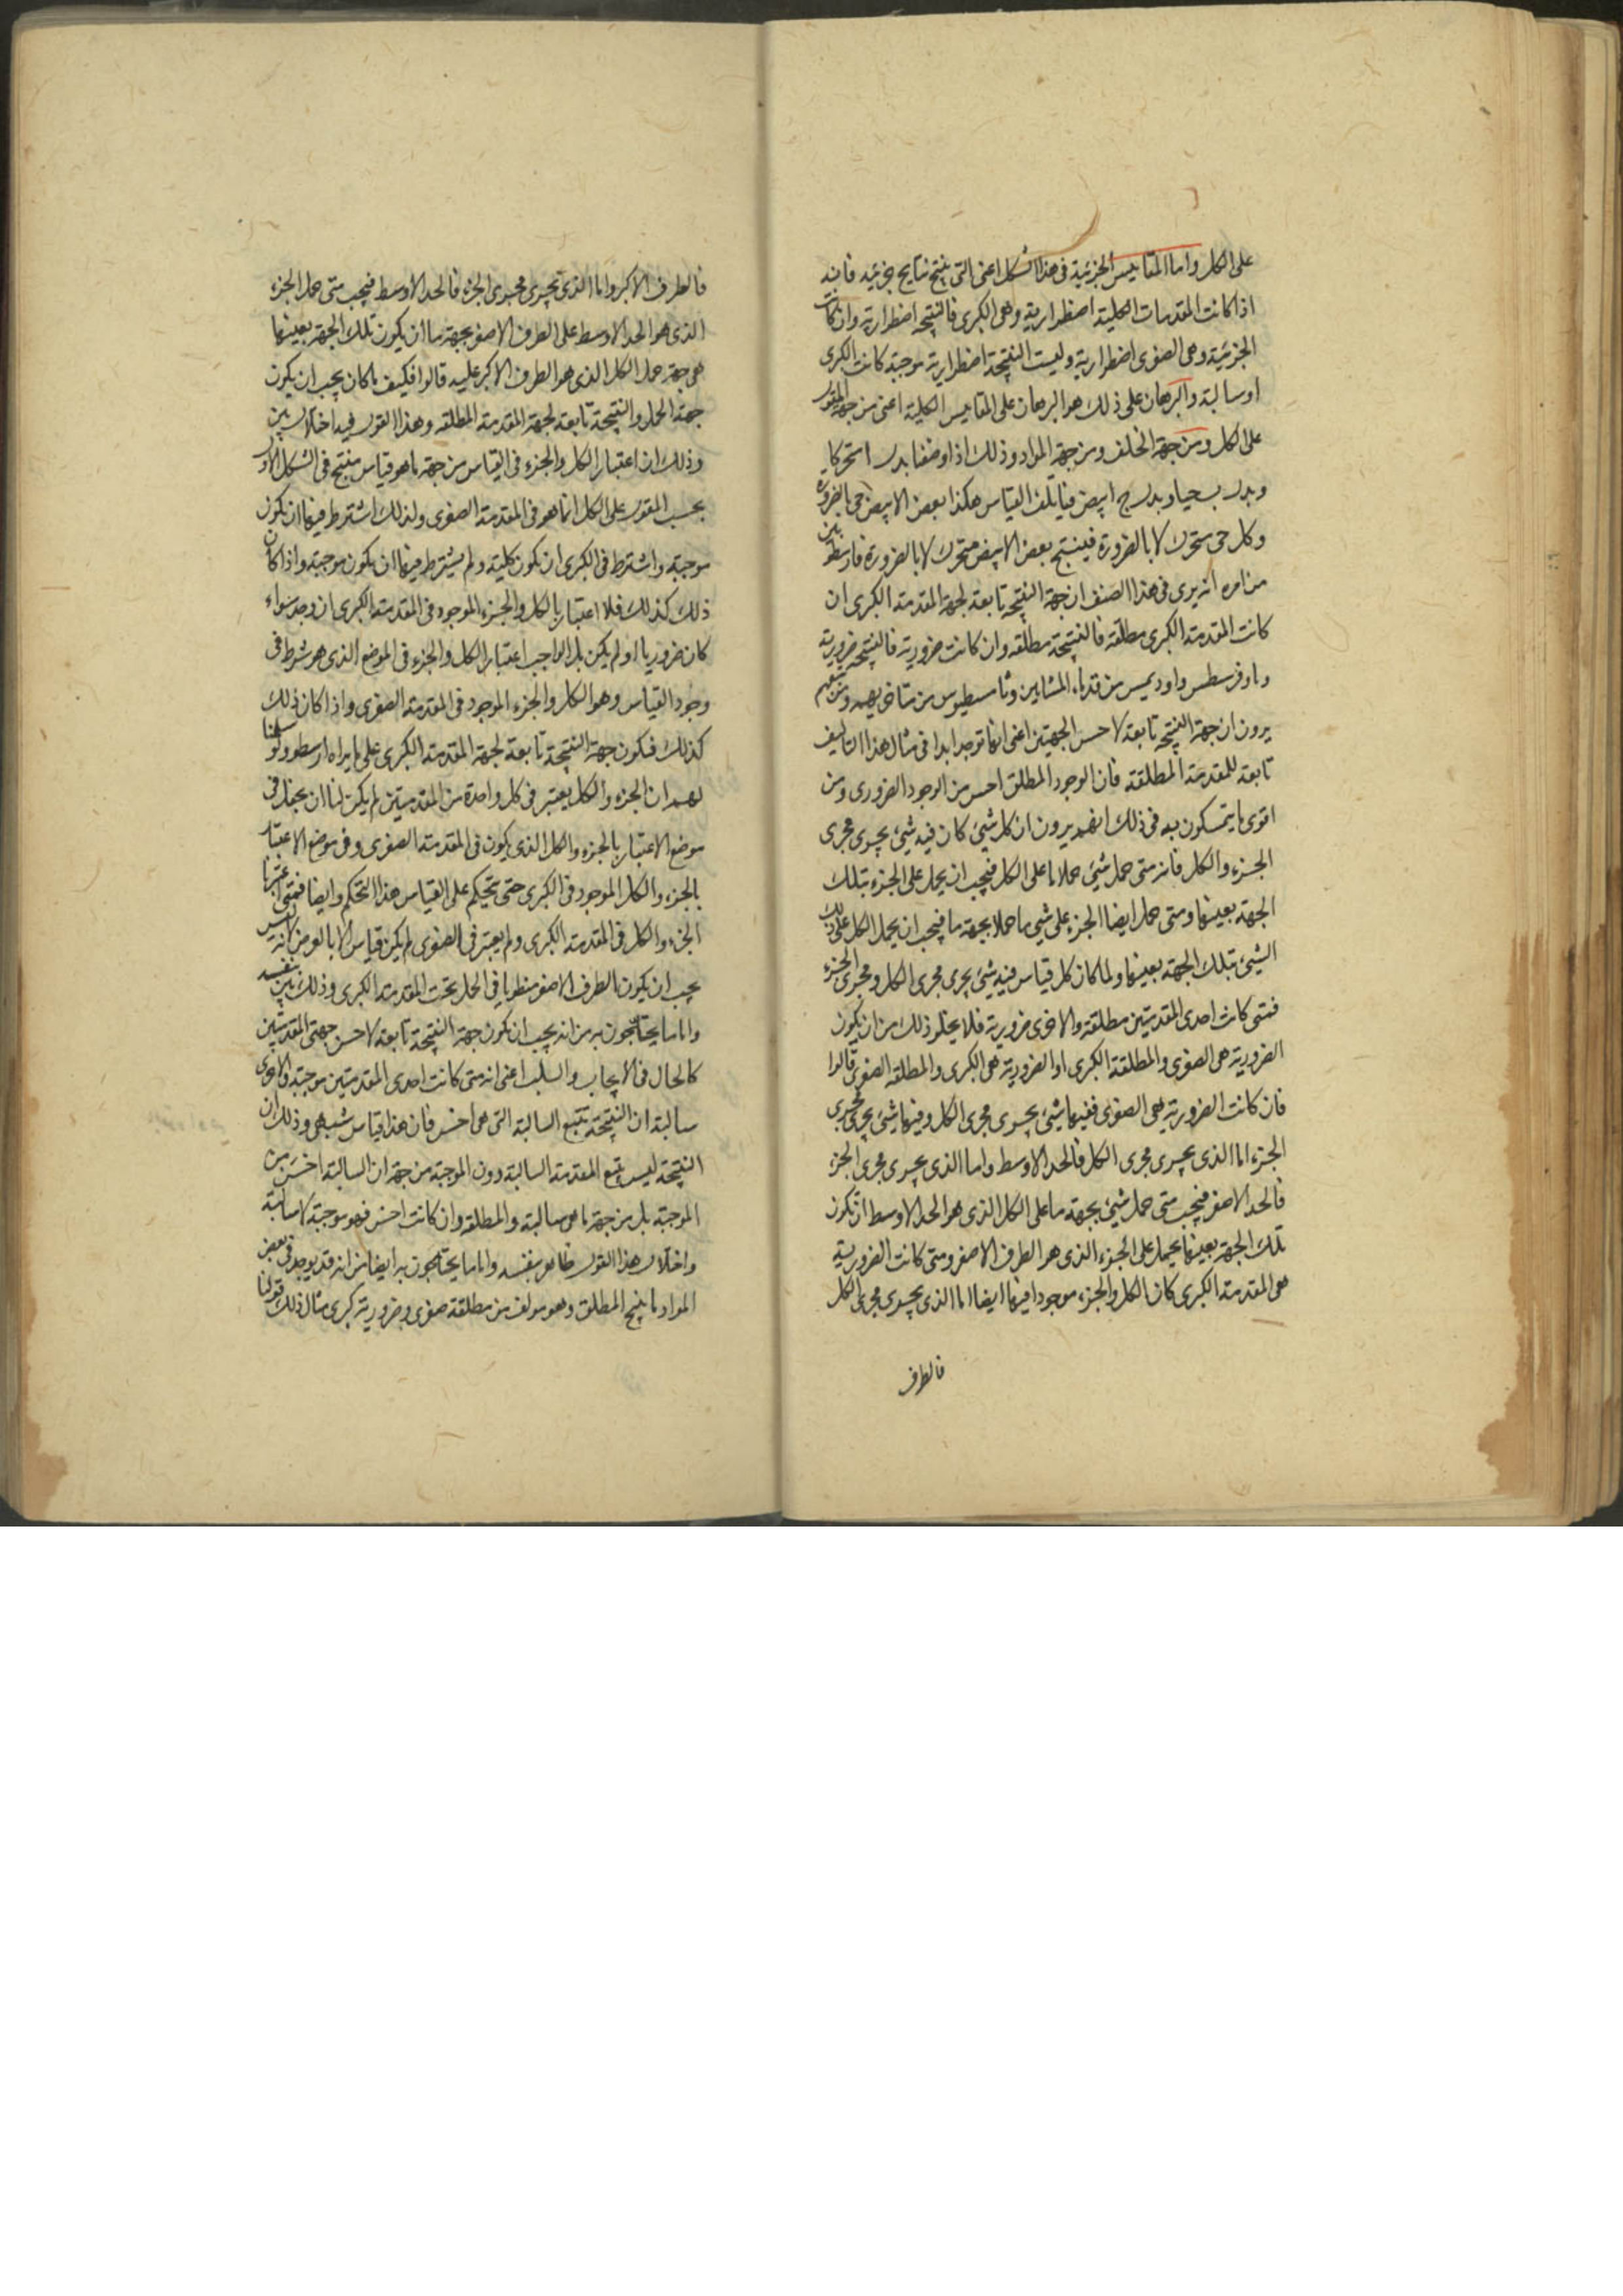 على الكل واما المقاييس الجزئية في هذا الشكل اعني التي ينتج نتايج جزئيه فانه
اذا كانت المقدمات الكلية اضطرارية وهي الكبرى فالنتيجه اضطراريه وان كانت
الجزئية وهي الصغرى اضطرارية وليست النتيجة اضطرارية موجبة كانت الكبرى
او سالبة والبرهان على ذلك هو البرهان على المقاييس الكلية اعني من جهة المقول
على الكل ومن جهة الخلف ومن جهة المواد وذلك اذا وضعنا بدل ا متحركا
وبدل ب حيا وبدل ج ابيض فيأتلف القياس هكذا بعض الابيض حي بالضرورة
وكل حي متحرك لا بالضرورة فينتج بعض الابيض متحرك لا بالضرورة فارسطو بين
من امره انه يرى في هذا الصنف ان جهة النتيجه تابعة لجهة المقدمة الكبرى ان
كانت المقدمة الكبرى مطلقة فالنتيجة مطلقه وان كانت ضرورية فالنتيجه ضرورية
وثاوفرسطس واوديمس من قدماء المشايين وثامسطيوس من متاخريهم ومن تبعهم
يرون ان جهة النتيجه تابعة لاخس الجهتين اعني انها توجد ابدا في مثال هذا التاليف
تابعة للمقدمة المطلقة فان الوجود المطلق اخس من الوجود الضروري ومن
اقوى ما يتمسكون به في ذلك انهم يرون ان كل شيئ كان فيه شيئ يجري مجرى
الجزء والكل فانه متى حمل شيئ حملا ما على الكل فيجب ان يحمل على الجزء بتلك
الجهة بعينها ومتى حمل ايضا الجزء على شيئ ما حملا بجهة ما فيجب ان يحمل الكل على ذلك
الشيئ بتلك الجهة بعينها ولما كان كل قياس فيه شيئ يجري مجرى الكل ومجرى الجزء
فمتى كانت احدى المقدمتين مطلقة والاخرى ضرورية فلا يخلو ذلك من ان يكون
الضرورية هي الصغرى والمطلقة الكبرى او الضرورية هي الكبرى والمطلقة الصغرى قالوا
فان كانت الضرورية هي الصغرى ففيها شيئ يجري مجرى الكل وفيها شيئ يجري مجرى
الجزء اما الذي يجري مجرى الكل فالحد الاوسط واما الذي يجري مجرى الجزء
فالحد الاصغر فيجب متى حمل شيئ بجهة ما على الكل الذي هو الحد الاوسط ان تكون
تلك الجهة بعينها يحمل على الجزء الذي هو الطرف الاصغر ومتى كانت الضرورية
هي المقدمة الكبرى كان الكل والجزء موجودا فيها ايضا اما الذي يجري مجرى الكل
فالطرف
فالطرف الاكبر واما الذي تجري مجرى الجزء فالحد الاوسط فيجب متى حمل الجزء
الذي هو الحد الاوسط على الطرف الاصغر بجهة ما ان يكون تلك الجهة بعينها
هي جهة حمل الكل الذي هو الطرف الاكبر عليه قالوا فكيف ما كان يجب ان يكون
جهة الحمل والنتيجة تابعة لجهة المقدمة المطلقه وهذا القول فيه اختلال بين
وذلك ان اعتبار الكل والجزء في القياس من جهة ما هو قياس منتج في الشكل الاول
بحسب المقول على الكل انما هو في المقدمة الصغرى ولذلك اشترط فيها ان تكون
موجبة واشترط في الكبرى ان تكون كلية ولم يشترط فيها ان يكون موجبة واذا كان
ذلك كذلك فلا اعتبار بالكل والجزء الموجود في المقدمة الكبرى ان وجد سواء
كان ضروريا او لم يكن بل الواجب اعتبار الكل والجزء في الموضع الذي هو شرط في
وجود القياس وهو الكل والجزء الموجود في المقدمة الصغرى واذا كان ذلك
كذلك فتكون جهة النتيجة تابعة لجهة المقدمة الكبرى على ما يراه ارسطو ولو سلمنا
لهم ان الجزء والكل يعتبر في كل واحدة من المقدمتين لم يكن لنا ان نجعل في
موضع الاعتبار بالجزء والكل الذي يكون في المقدمة الصغرى وفي موضع الاعتبار
بالجزء والكل الموجود في الكبرى حتى يتحكم على القياس هذا التحكم وايضا فمتى اعتبرنا
الجزء والكل في المقدمة الكبرى ولم يعتبر في الصغرى لم يكن قياس الا بالعرض لانه ليس
يجب ان يكون الطرف الاصغر منطويا في الحمل تحت المقدمة الكبرى وذلك بين بنفسه
واما ما يحتجون به من انه يجب ان تكون جهة النتيجة تابعة لاخس جهتي المقدمتين
كالحال في الايجاب والسلب اعني انه متى كانت احدى المقدمتين موجبة والاخرى
سالبة ان النتيجة تتبع السالبة التي هي اخس فان هذا قياس شبهي وذلك ان
النتيجة ليس يتبع المقدمة السالبة دون الموجبة من جهة ان السالبة اخس من
الموجبة بل من جهة ما هي سالبة والمطلقة وان كانت اخس فهو موجبة لا سالبة
واختلال هذا القول ظاهر بنفسه واما ما يحتجون به ايضا من انه قد يوجد في بعض
المواد ما ينتج المطلق وهو مولف من مطلقة صغرى وضرورية كبرى مثال ذلك قولنا